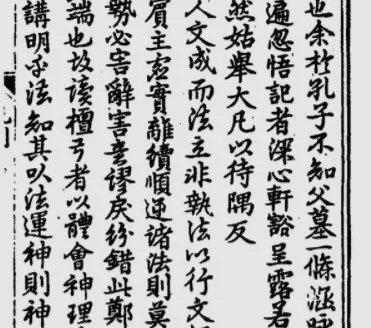 也余於孔子不知父墓一條涵
遍忽悟記者深心軒豁呈露若
然姑舉大凡以待隅反
人文成而法立非執法以行文
賓主虛實離續順逆諸法則莫
勢必害辭害意謬戾紛錯此鄭
端也故讀檀弓者以體會神理
講明乎法知其以法運神則神